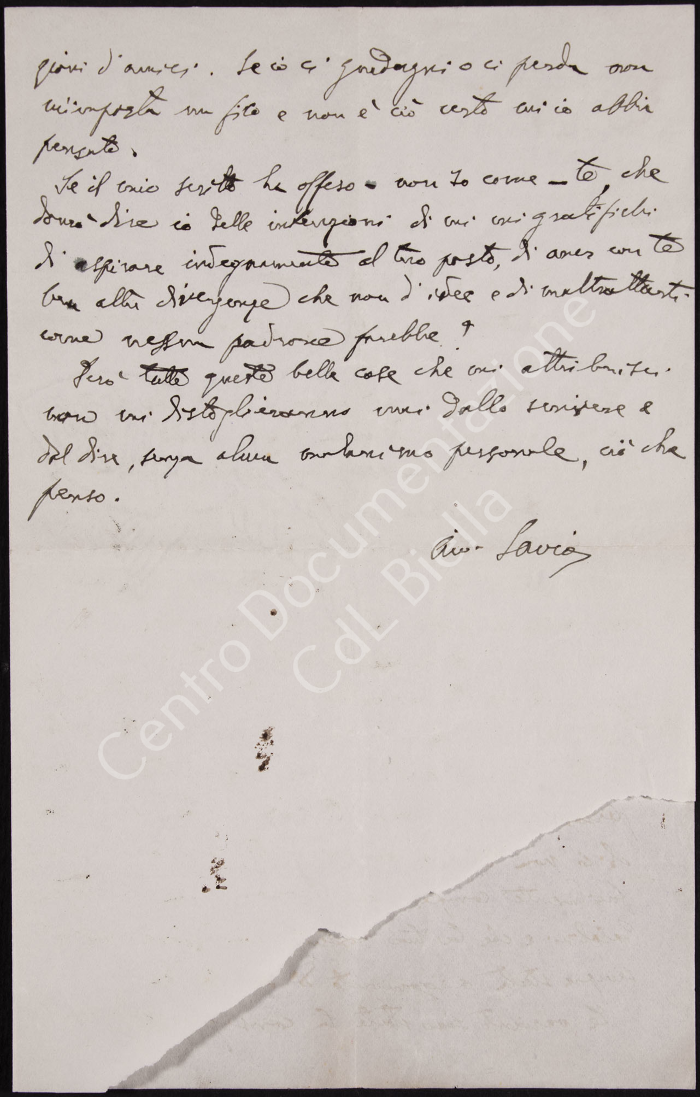 gioni d'amici. Se io ci guadagni o ci perda non
m'importa un fico e non è ciò certo cui io abbia
pensato.
Se il mio scritto ha offeso - non so come - te, che
dovrò dire io delle intenzioni di cui mi gratifichi
di aspirare indegnamente al tuo posto, di aver con te
ben altre divergenze che non d'idee e di maltrattarti
come nessun padrone farebbe?
Però tutte queste belle cose che mi attribuisci
non mi distoglieranno mai dallo scrivere e
dal dire, senza alcun malanimo personale, ciò che
penso.
Savio
Centro Documentazione
CdL Biella